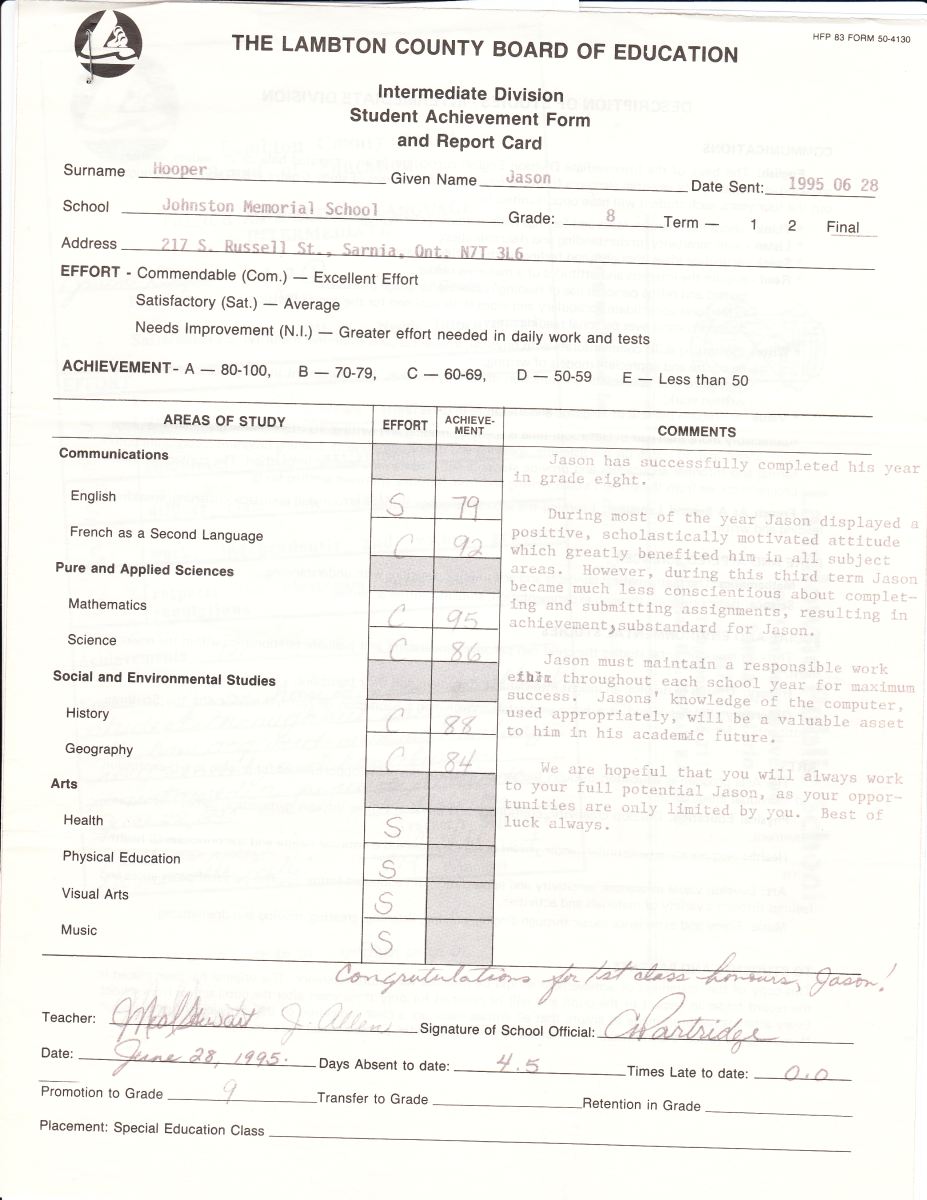 HFP 83 FORM 50-4130
THE LAMBTON COUNTY BOARD OF EDUCATION
Intermediate Division
Student Achievement Form
and Report Card
Surname Hooper Given Name Jason Date Sent: 1995 06 28
School Johnston Memorial School Grade: 8 Term — 1 2 Final
Address 217 S. Russell St., Sarnia, Ont. N7T 3L6
EFFORT - Commendable (Com.) — Excellent Effort
Satisfactory (Sat.) — Average
Needs Improvement (N.I.) — Greater effort needed in daily work and tests
ACHIEVEMENT- A — 80-100, B — 70-79, C — 60-69, D — 50-59 E — Less than 50
AREAS OF STUDY EFFORT ACHIEVE-
MENT
COMMENTS
Communications
English S 79
French as a Second Language C 92
Pure and Applied Sciences
Mathematics C 95
Science C 86
Social and Environmental Studies
History C 88
Geography C 84
Arts
Health S
Physical Education S
Visual Arts S
Music S
Jason has successfully completed his year
in grade eight.
During most of the year Jason displayed a
positive, scholastically motivated attitude
which greatly benefited him in all subject
areas. However, during this third term Jason
became much less conscientious about complet-
ing and submitting assignments, resulting in
achievement, substandard for Jason.
Jason must maintain a responsible work
throughout each school year for maximum
success. Jasons' knowledge of the computer,
used appropriately, will be a valuable asset
to him in his academic future.
We are hopeful that you will always work
to your full potential Jason, as your oppor-
tunities are only limited by you. Best of
luck always.
Congratulations for 1st class honours, Jason!
Teacher: Stewart J. Allen Signature of School Official: Partridge
Date: June 28, 1995. Days Absent to date: 4.5 Times Late to date: 0.0
Promotion to Grade 9 Transfer to Grade Retention in Grade
Placement: Special Education Class